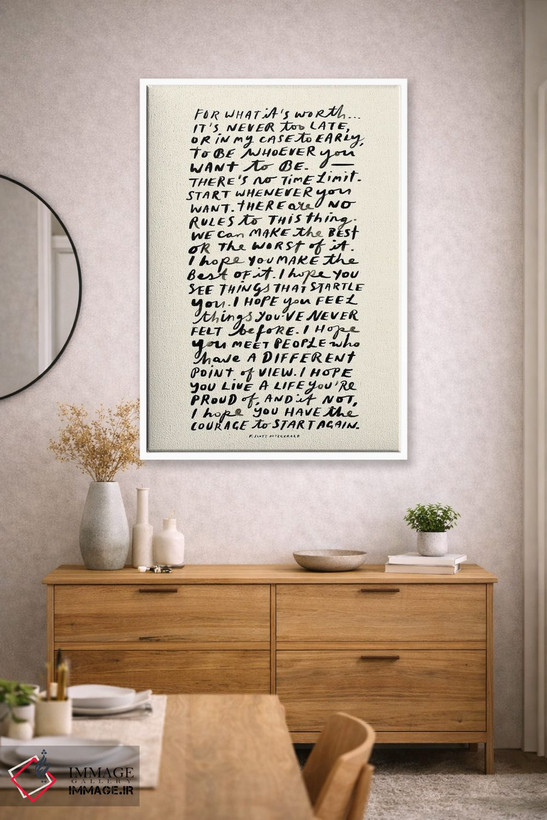 FOR WHAT it's WORTH...
IT'S NEVER too LATE,
OR IN MY CASE to EARLY,
TO BE WHOEVER you
WANT to BE.
THERE'S no TIME Limit.
START WHENEVER you
WANT. THERE are NO
RULES to THIS thing.
WE can MAKE the BEST
OR The WORST of it.
I hope YOU MAKE the
Best OF it. I hope YOU
SEE THINGS THAT STARTLE
you. I HOPE you FEEL
things YOU'VE NEVER
FELT before. I Hope
you MEET PEOPLE who
have A DIFFERENT
POINT of VIEW. I HOPE
YOU LIVE A LIFE YOU'RE
PROUD of, AND if NOT,
I hope YOU HAVE the
COURAGE to START AGAIN.
F. SCOTT FITZGERALD
IMMAGE
GALLERY
IMMAGE.IR